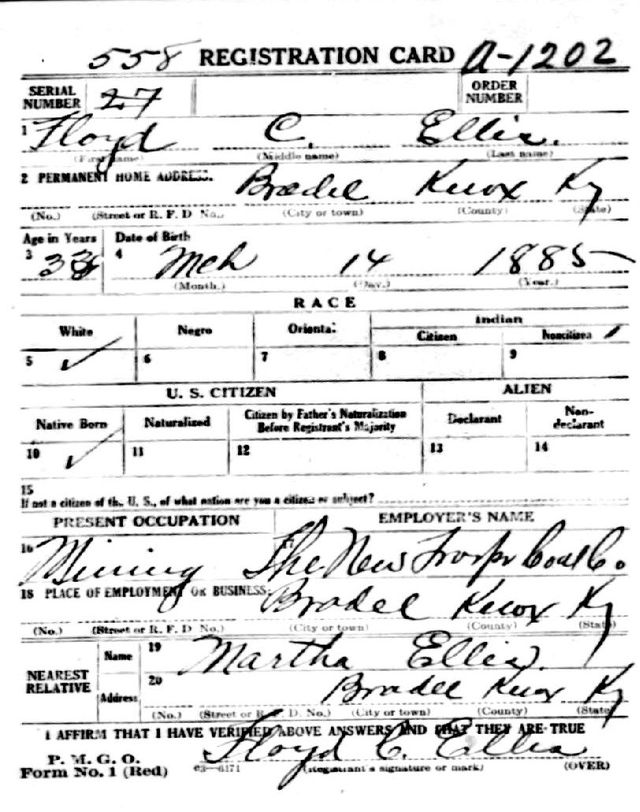 558 REGISTRATION CARD A-1202
SERIAL NUMBER 27 ORDER NUMBER
1 Floyd C. Ellis.
(First name) (Middle name) (Last name)
2 PERMANENT HOME ADDRESS. Bradel Knox Ky
(No.) (Street or R. F. D No.) (City or town) (County) (State)
Age in Years Date of Birth
3 33 4 Mch 14 1885
(Month.) (Day.) (Year.)
RACE
White Negro Oriental Indian
Citizen Noncitizen
5 ✓ 6 7 8 9
U. S. CITIZEN ALIEN
Native Born Naturalized Citizen by Father's Naturalization Before Registrant's Majority Declarant Non-declarant
10 ✓ 11 12 13 14
15
If not a citizen of the U. S., of what nation are you a citizen or subject?
PRESENT OCCUPATION EMPLOYER'S NAME
16 Mining The New Coal Co
18 PLACE OF EMPLOYMENT OR BUSINESS. Bradel Knox Ky
(No.) (Street or R. F. D No.) (City or town) (County) (State)
NEAREST RELATIVE Name 19 Martha Ellis.
Address 20 Bradel Knox Ky
(No.) (Street or R. F. D. No.) (City or town) (County) (State)
I AFFIRM THAT I HAVE VERIFIED ABOVE ANSWERS AND THAT THEY ARE TRUE
P. M. G. O.
Form No. 1 (Red) 03-6171 Floyd C. Ellis
(Registrant's signature or mark) (OVER)